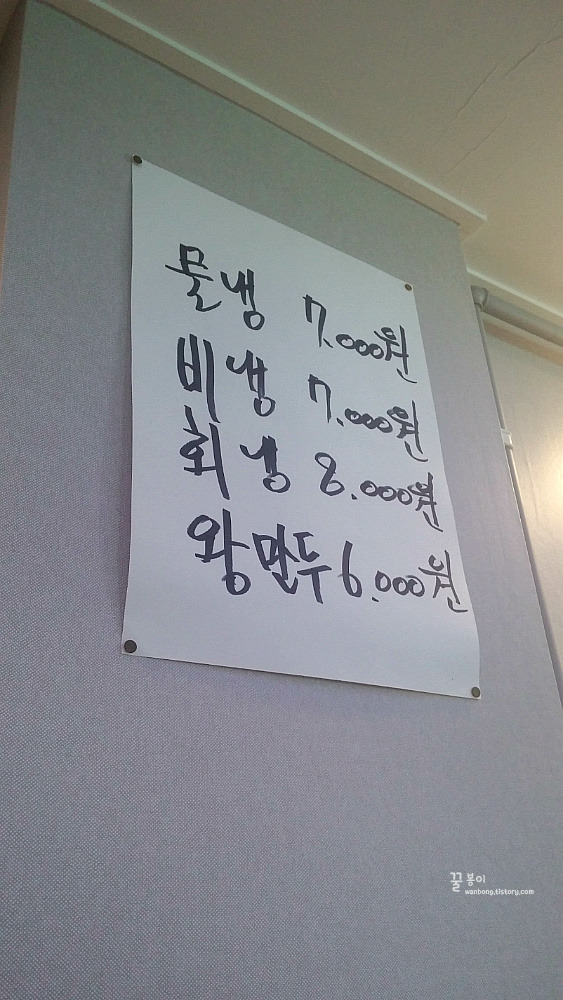 물냉 7.000원
비냉 7.000원
회냉 8.000원
왕만두 6.000원
꿀봉이
wanbong.tistory.com